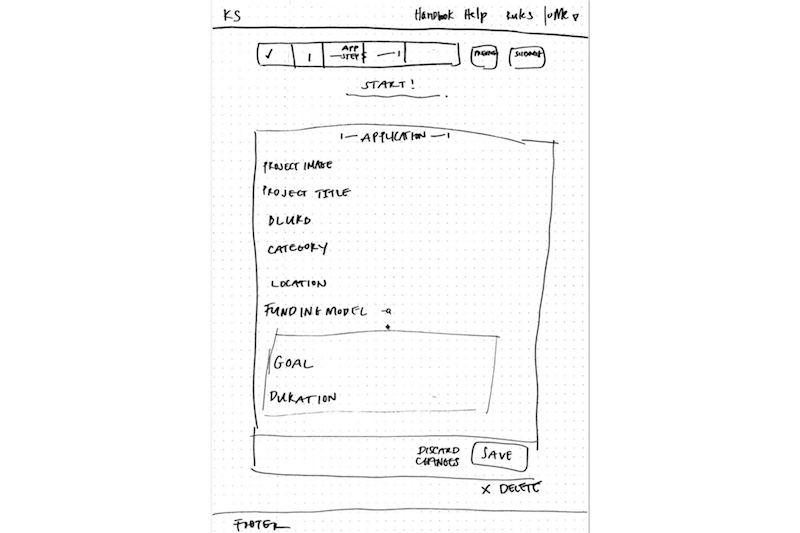 KS Handbook Help Rules Me
✓ 1 APP STEPS PREVIEW SUBMIT
START!
APPLICATION
PROJECT IMAGE
PROJECT TITLE
BLURB
CATEGORY
LOCATION
FUNDING MODEL
GOAL
DURATION
DISCARD
CHANGES SAVE
X DELETE
FOOTER